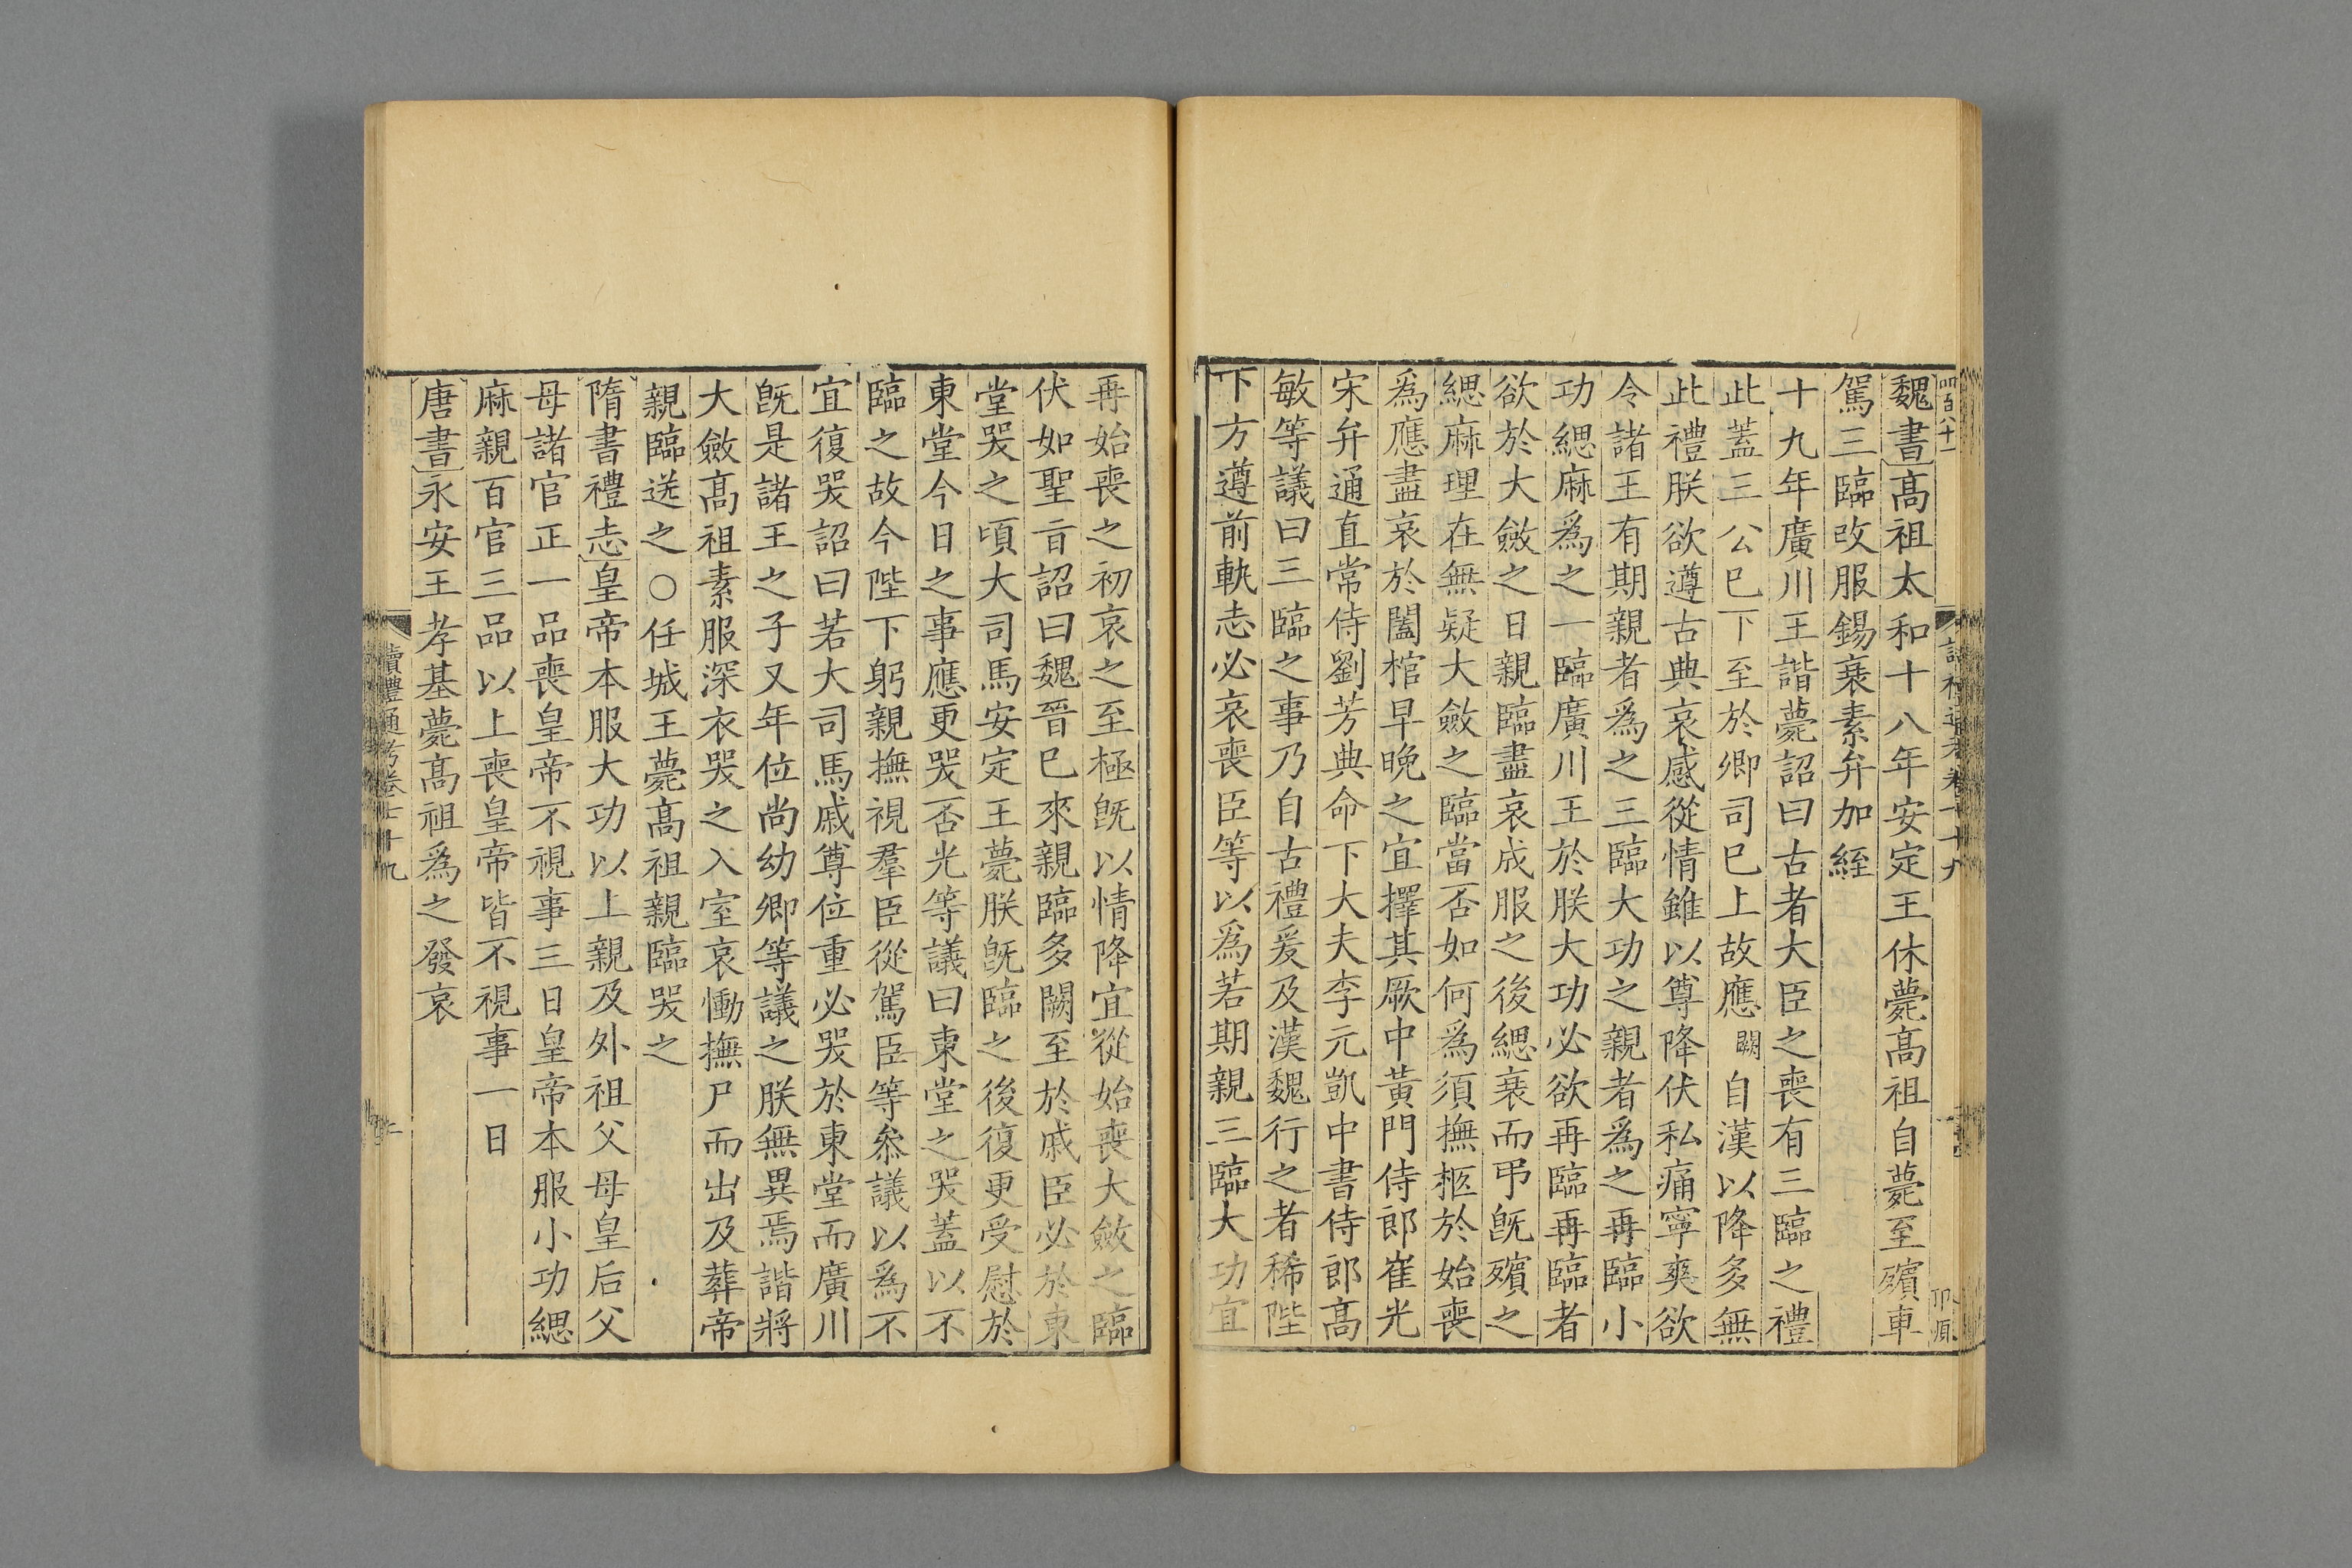 魏書高祖太和十八年安定王休薨高祖自薨至殯車
駕三臨改服錫衰素弁加絰
十九年廣川王諧薨詔曰古者大臣之喪有三臨之禮
此蓋三公已下至於卿司已上故應闕自漢以降多無
此禮朕欲遵古典哀感從情雖以尊降伏私痛寧爽欲
令諸王有期親者爲之三臨大功之親者爲之再臨小
功緦麻爲之一臨廣川王於朕大功必欲再臨再臨者
欲於大斂之日親臨盡哀成服之後緦衰而弔旣殯之
緦麻理在無疑大斂之臨當否如何爲須撫柩於始喪
爲應盡哀於闔棺早晚之宜擇其厥中黃門侍郎崔光
宋弁通直常侍劉芳典命下大夫李元凱中書侍郎高
敏等議曰三臨之事乃自古禮爰及漢魏行之者稀陛
下方遵前軌志必哀喪臣等以爲若期親三臨大功宜
再始喪之初哀之至極旣以情降宜從始喪大斂之臨
伏如聖旨詔曰魏晉已來親臨多闕至於戚臣必於東
堂哭之頃大司馬安定王薨朕旣臨之後復更受慰於
東堂今日之事應更哭否光等議曰東堂之哭蓋以不
臨之故今陛下躬親撫視羣臣從駕臣等參議以爲不
宜復哭詔曰若大司馬戚尊位重必哭於東堂而廣川
旣是諸王之子又年位尚幼卿等議之朕無異焉諧將
大斂高祖素服深衣哭之入室哀慟撫尸而出及葬帝
親臨送之○任城王薨高祖親臨哭之
隋書禮志皇帝本服大功以上親及外祖父母皇后父
母諸官正一品喪皇帝不視事三日皇帝本服小功緦
麻親百官三品以上喪皇帝皆不視事一日
唐書永安王孝基薨高祖爲之發哀
讀禮通考卷七十九